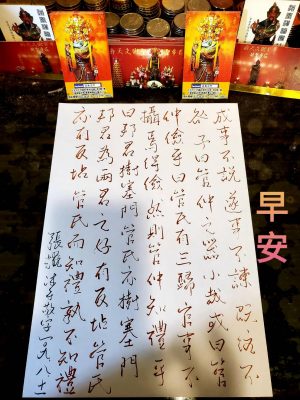 成事不說遂事不諫既往不
咎子曰管仲之器小哉或曰管
仲儉乎曰管氏有三歸官事不
攝焉得儉然則管仲知禮乎
曰邦君樹塞門管氏亦樹塞門
邦君為兩君之好有反坫管氏
亦有反坫管氏而知禮孰不知禮
早安